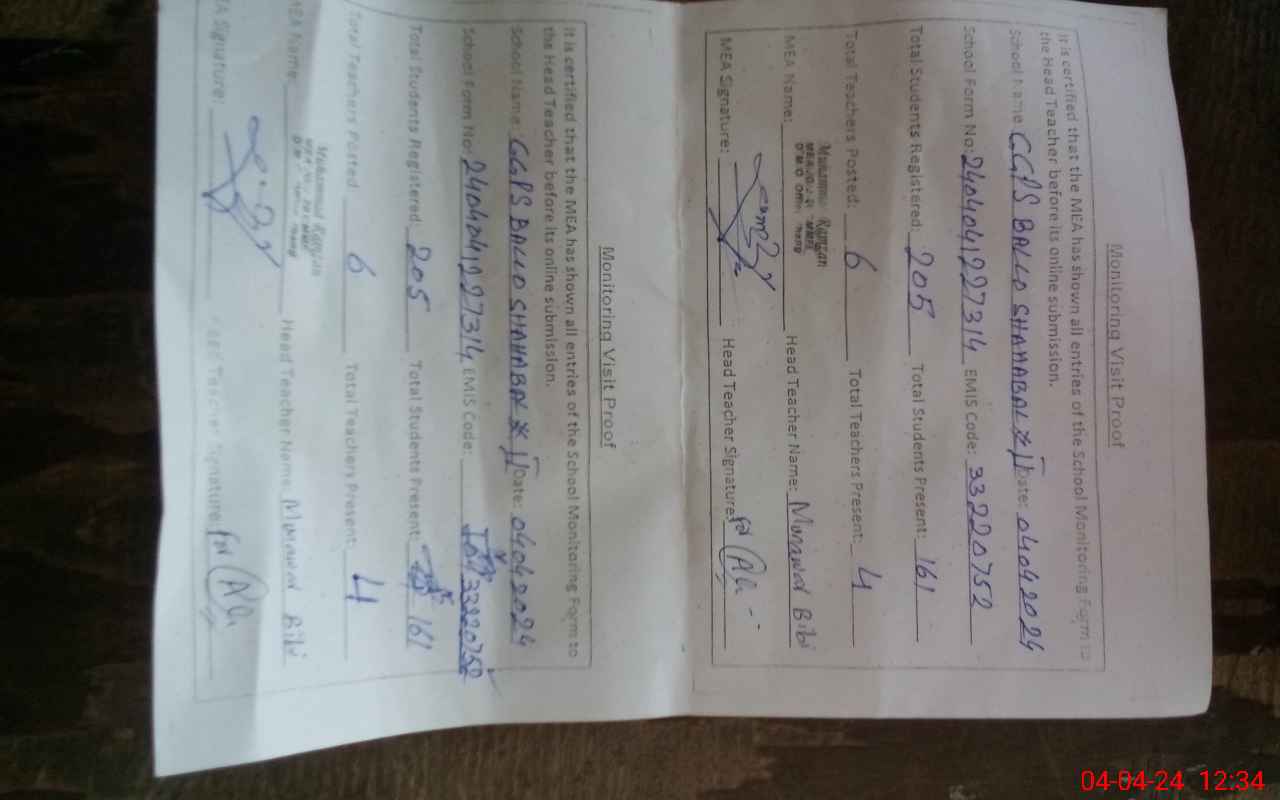 Monitoring Visit Proof
It is certified that the MEA has shown all entries of the School Monitoring Form to
the Head Teacher before its online submission.
School Name: GGPS BALLO SHAHABAL Date: 04042024
School Form No: 2404041227314 EMIS Code: 33220752
Total Students Registered: 205 Total Students Present: 161
Total Teachers Posted: 6 Total Teachers Present: 4
Muhammad Ramzan
MEA Name: Head Teacher Name: Munawar Bibi
MEA Signature: Head Teacher Signature: for
Monitoring Visit Proof
It is certified that the MEA has shown all entries of the School Monitoring Form to
the Head Teacher before its online submission.
School Name: GGPS BALLO SHAHABAL Date: 04042024
School Form No: 2404041227314 EMIS Code: 33220752
Total Students Registered: 205 Total Students Present: 161
Total Teachers Posted 6 Total Teachers Present: 4
Muhammad Ramzan
MEA Name: Head Teacher Name: Munawar Bibi
Signature: Head Teacher Signature: for
04-04-24 12:34